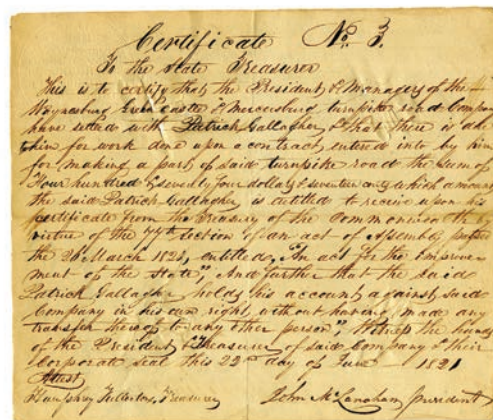 Certificate No. 3.
To the State Treasurer
This is to certify that the President & Managers of the
Waynesburg Greencastle & Mercersburg turnpike road Company
have settled with Patrick Gallagher & that there is due
to him for work done upon a contract entered into by him
for making a part of said turnpike road the sum of
Four hundred & seventy four dollars & seventeen cents which amount
the said Patrick Gallagher is entitled to receive upon his
certificate from the Treasury of the Commonwealth by
virtue of the section of an act of Assembly passed
the 26 March 1821, entitled, "An act for the improve-
ment of the State", And further that the said
Patrick Gallagher holds his account against said
Company in his own right, without having made any
transfer thereof to any other person", Witness the hands
of the President & Treasurer of said Company & their
Corporate seal this 22d day of June 1821
Attest
Humphrey Fullerton, Treasurer John McLanahan President